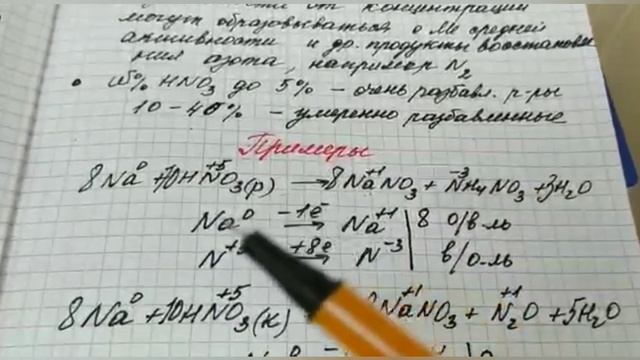 от концентрации
могут образовываться с Ме средней
активности и др. продукты восстановле
ния азота, например N₂
• ω% HNO₃ до 5% – очень разбавл. р-ры
10 – 40% – умеренно разбавленные
Примеры
8Na⁰ + 10HN⁺⁵O₃(р) → 8Na⁺¹NO₃ + N⁻³H₄NO₃ + 3H₂O
Na⁰ –1ē → Na⁺¹ | 8 о/в-ль
N⁺⁵ +8ē → N⁻³ | в/о-ль
8Na⁰ + 10HN⁺⁵O₃(к) Na⁺¹NO₃ + N⁺¹₂O + 5H₂O